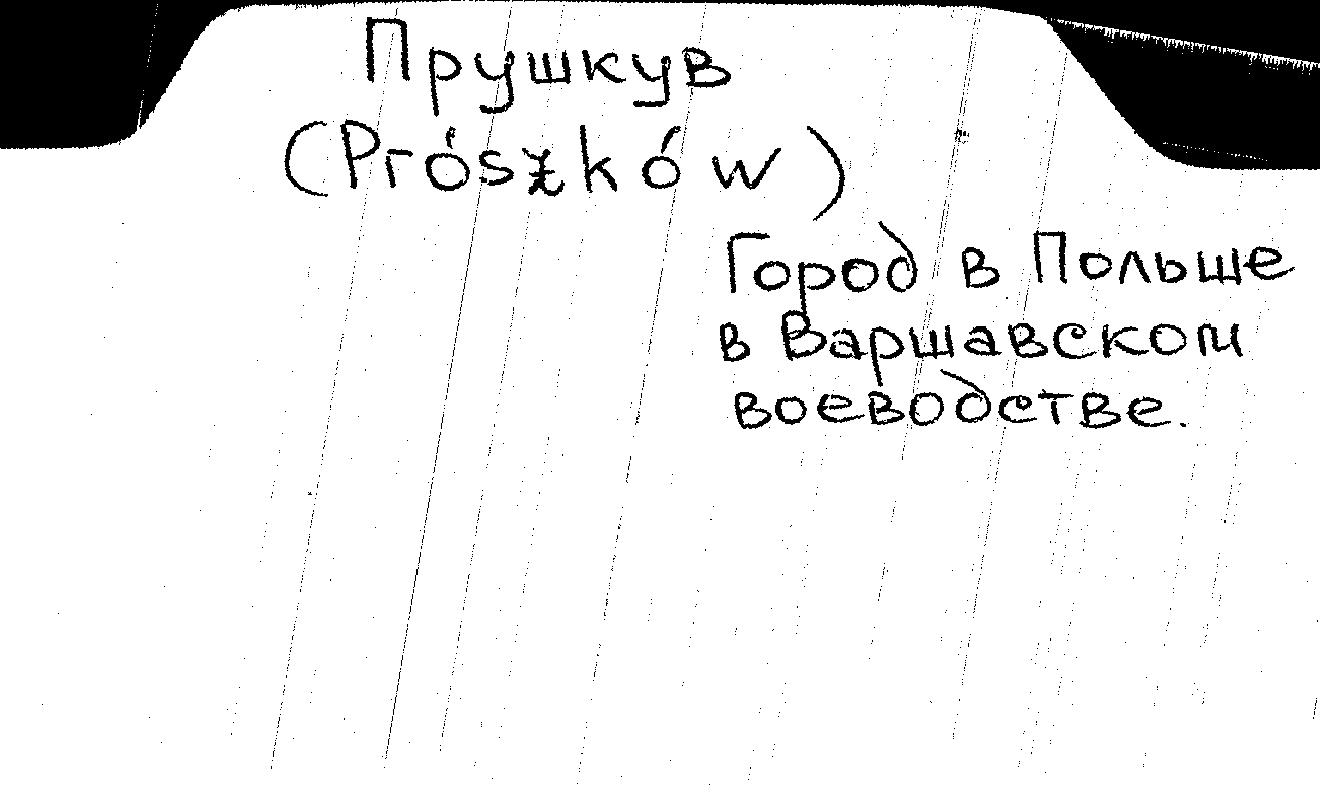 Прушкув
(Prószków)
Город в Польше
в Варшавском
воеводстве.